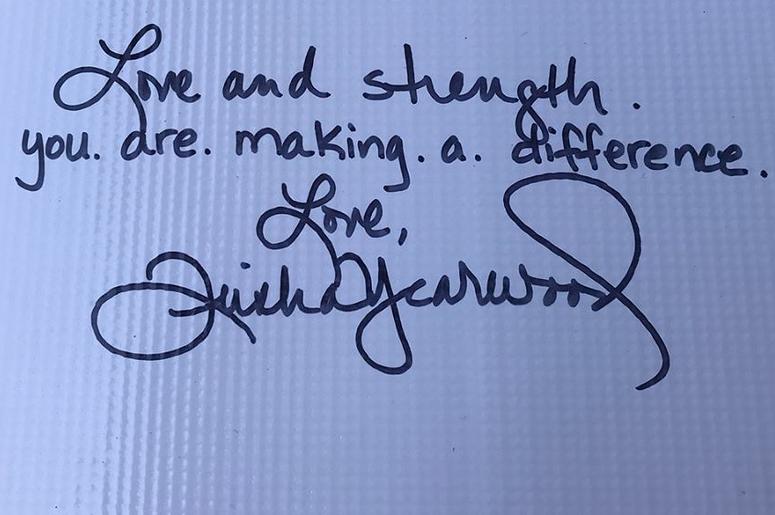 Love and strength.
you. are. making. a. difference.
Love,
Trisha Yearwood